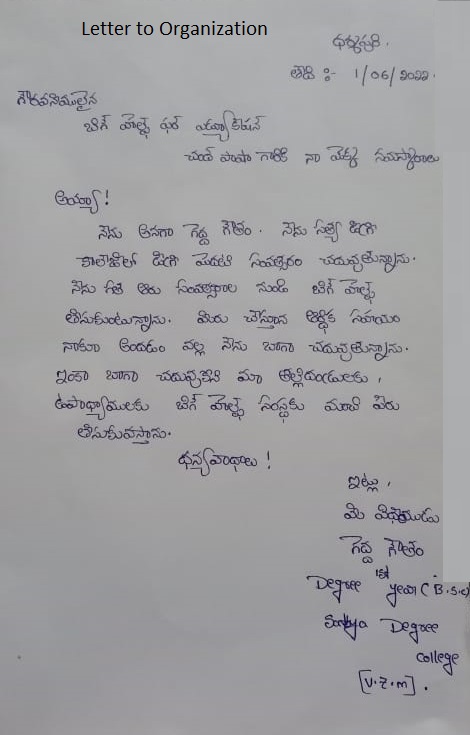 Letter to Organization
ధర్మపురి.
తేది :- 1/06/2022.
గౌరవనీయులైన
బిగ్ హెల్ప్ ఫర్ ఎడ్యుకేషన్
చాంద్ పాషా గారికి నా యొక్క నమస్కారాలు
అయ్యా!
నేను అనగా గెద్ద గౌతం. నేను సత్య డిగ్రి
కాలేజిలో డిగ్రి మొదటి సంవత్సరం చదువుతున్నాను.
నేను గత ఆరు సంవత్సరాల నుండి బిగ్ హెల్ప్
తీసుకుంటున్నాను. మీరు చేస్తున్న ఆర్థిక సహాయం
నాకూ అందడం వల్ల నేను బాగా చదువుతున్నాను.
ఇంకా బాగా చదువుకొని మా తల్లిదండ్రులకు,
ఉపాధ్యాయులకు బిగ్ హెల్ప్ సంస్థకు మంచి పేరు
తీసుకువస్తాను.
ధన్యవాదాలు!
ఇట్లు,
మీ విధేయుడు
గెద్ద గౌతం
Degree 1st year (B.s.c)
Satya Degree
college
[V.Z.M].